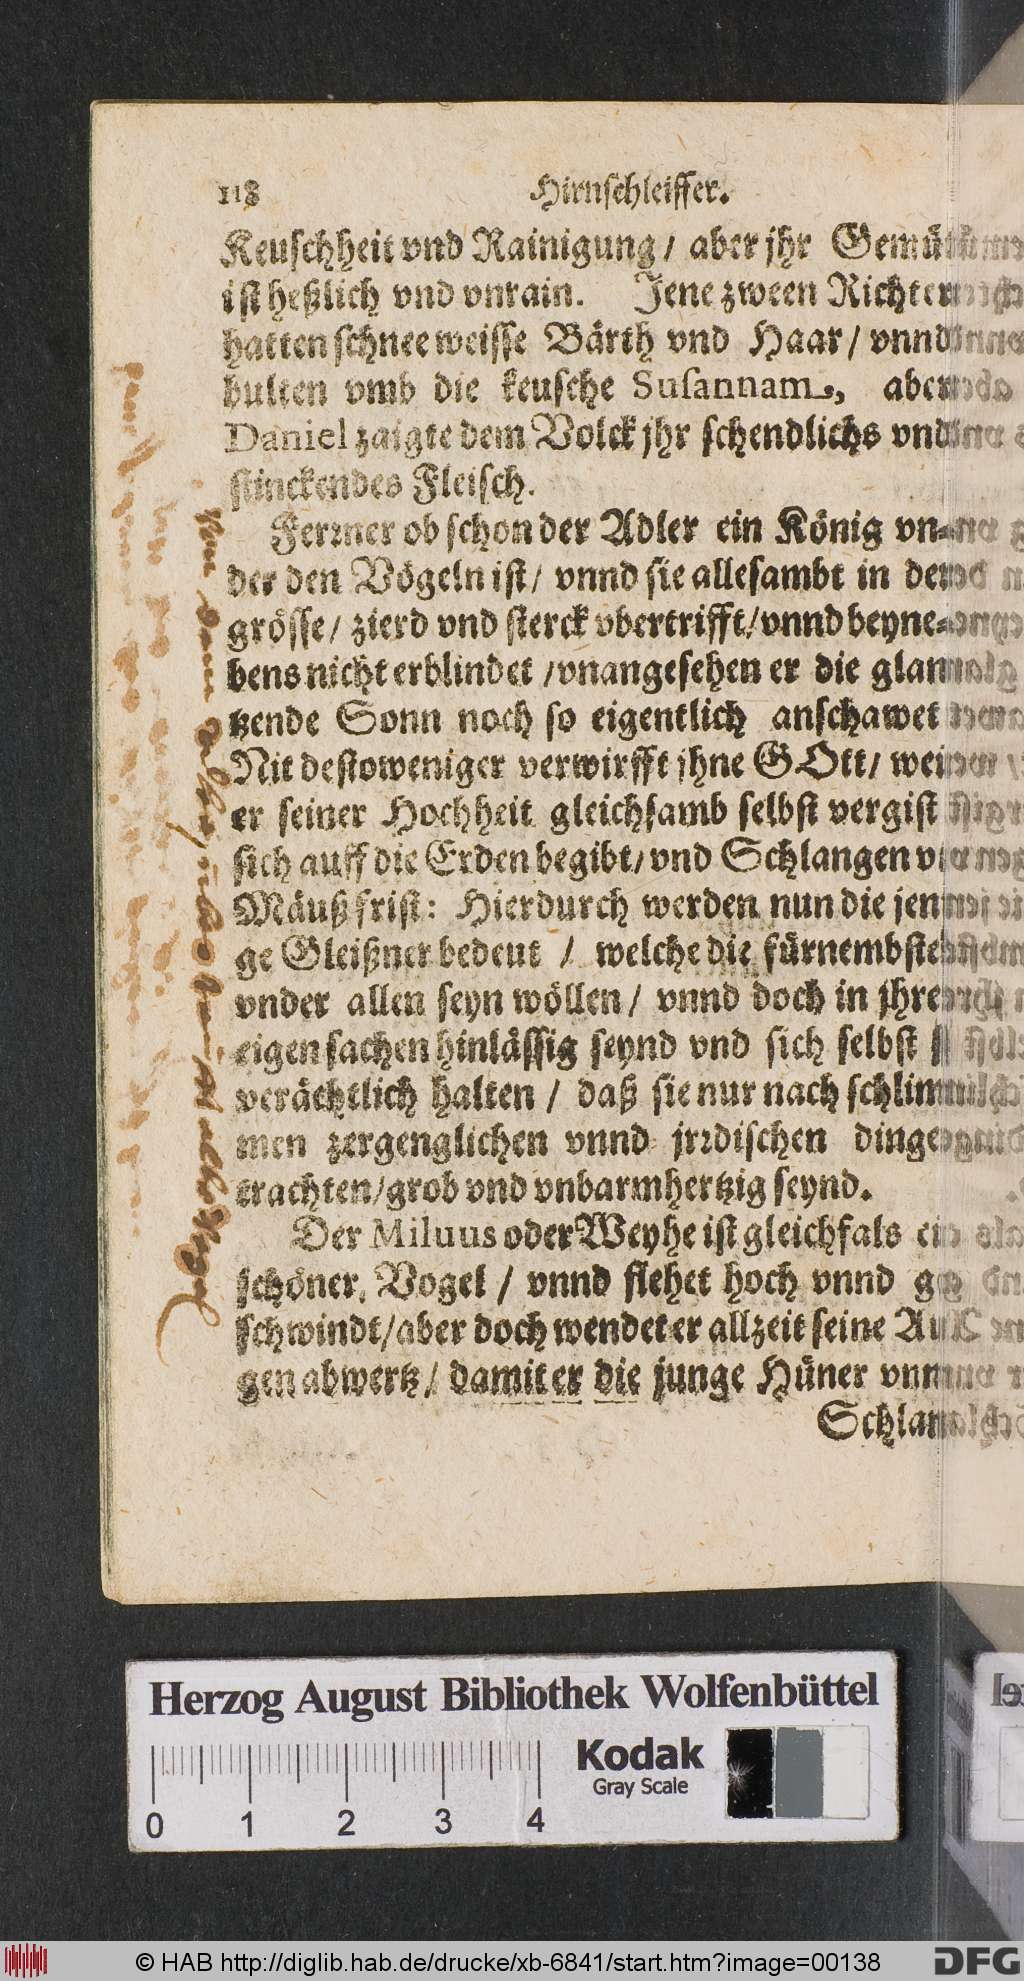 118 Hirnschleiffer.
Keuschheit vnd Rainigung / aber jhr Gemüt
ist heßlich vnd vnrain. Jene zween Richter
hatten schneeweisse Bärth vnd Haar / vnnd
bulten vmb die keusche Susannam, aber
Daniel zaigte dem Volck jhr schendlichs vnd
stinckendes Fleisch.
Ferꝛner ob schon der Adler ein König vn-
der den Vögeln ist / vnnd sie allesambt in der
grösse / zierd vnd sterck vbertrifft / vnnd beyne-
bens nicht erblindet / vnangesehen er die glan
tzende Sonn noch so eigentlich anschawet
Nit destoweniger verwirfft jhne GOtt / weil
er seiner Hochheit gleichsamb selbst vergist
sich auff die Erden begibt / vnd Schlangen vnd
Mäuß frist: Hierdurch werden nun die jeni
ge Gleißner bedeut / welche die fürnembsten
vnder allen seyn wöllen / vnnd doch in jhren
eigen sachen hinlässig seynd vnd sich selbst
verächtlich halten / daß sie nur nach schlim
men zergenglichen vnnd jrꝛdischen dingen
trachten / grob vnd vnbarmhertzig seynd.
Der Miluus oder Weyhe ist gleichfals ein
schöner Vogel / vnnd flehet hoch vnnd ge
schwindt / aber doch wendet er allzeit seine Au
gen abwertz / damit er die junge Hüner vnnd
Schlan
Herzog August Bibliothek Wolfenbüttel
Kodak
Gray Scale
0 1 2 3 4
© HAB http://diglib.hab.de/drucke/xb-6841/start.htm?image=00138
DFG